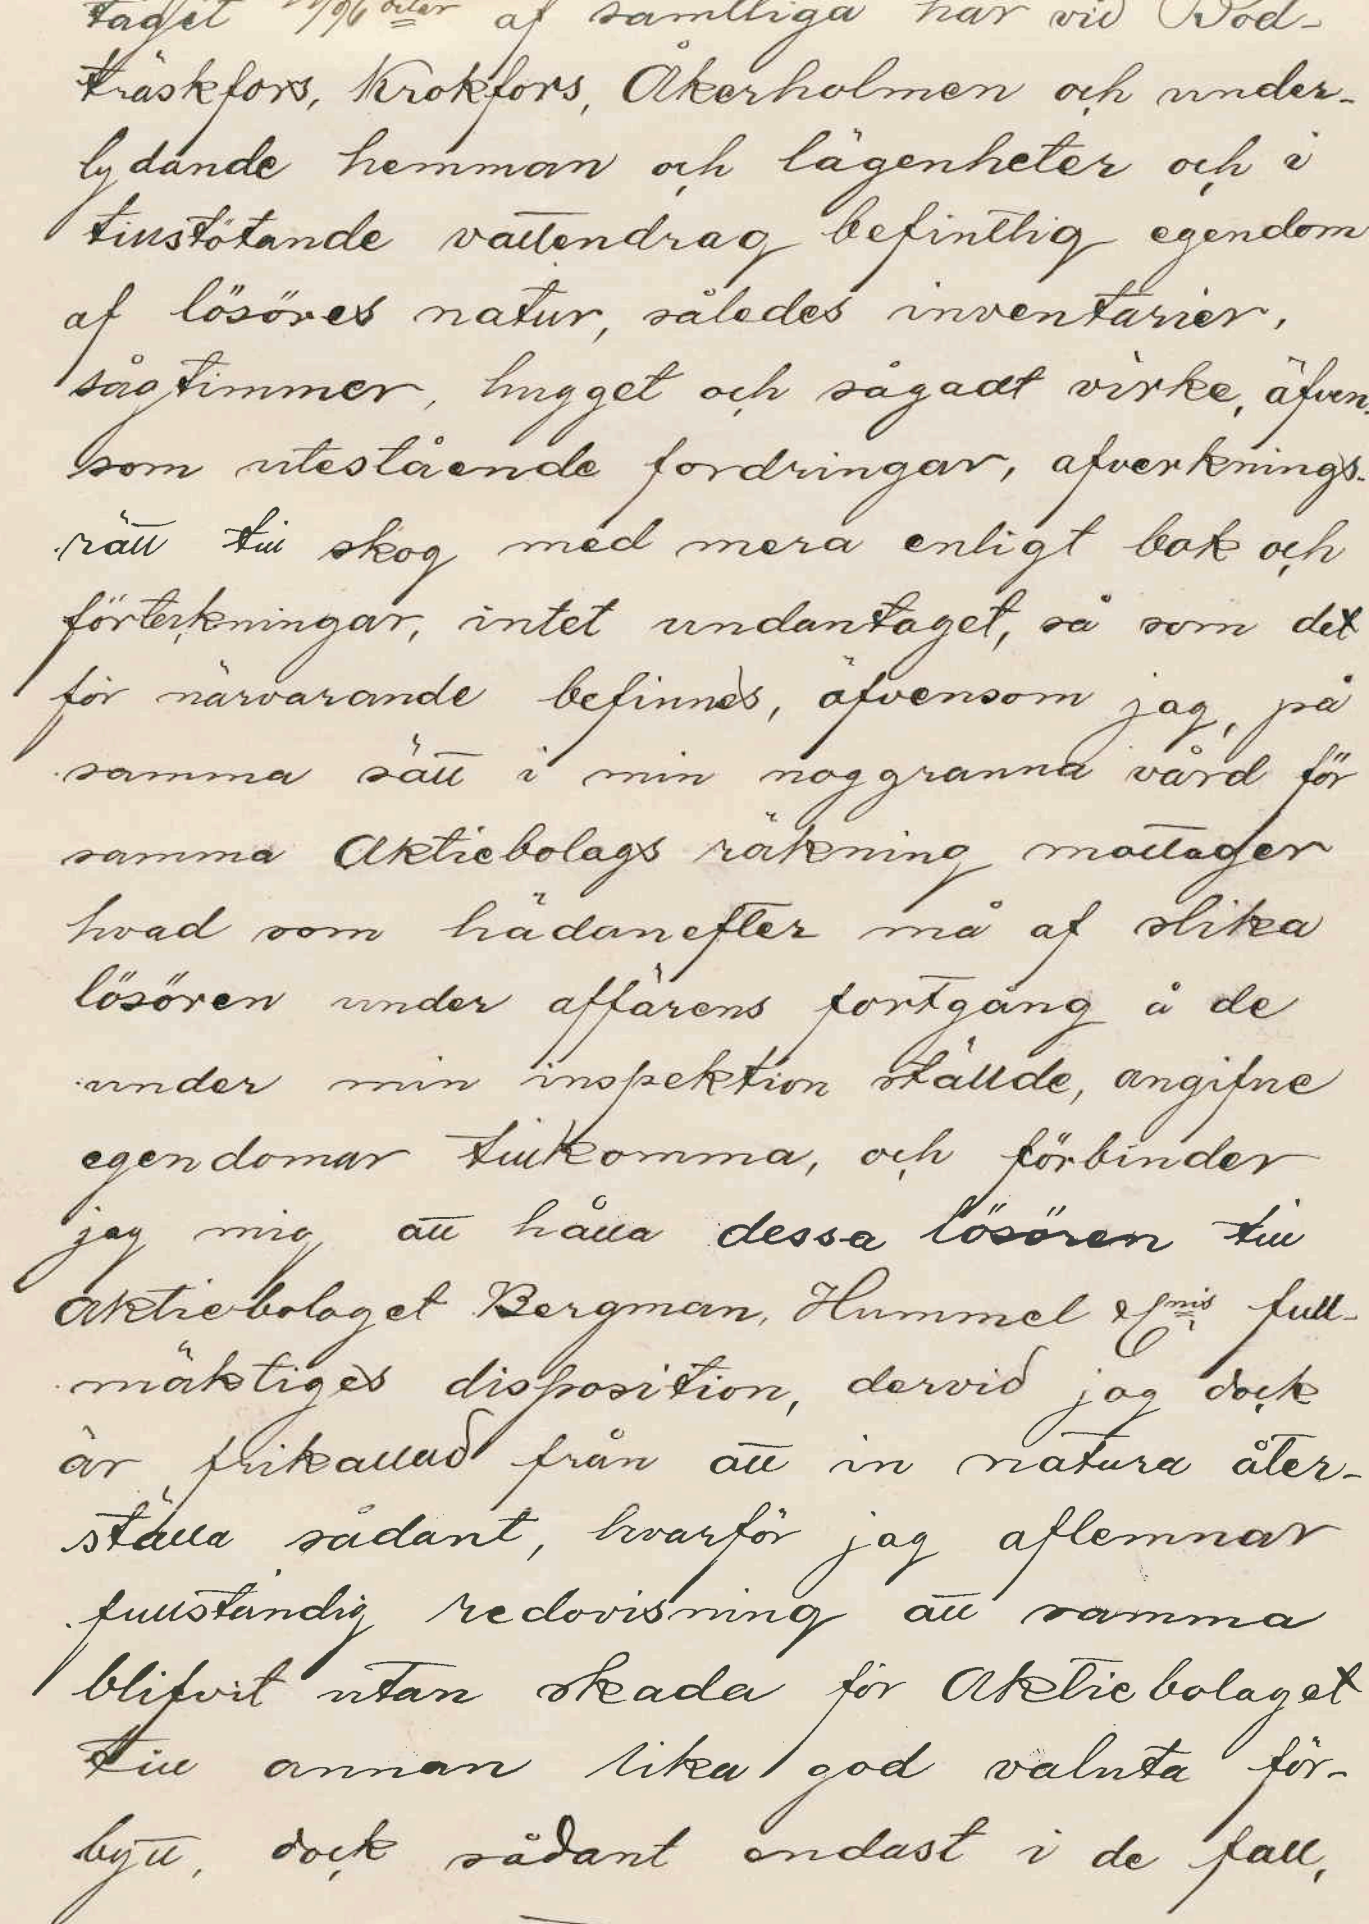 taget af samtliga här vid Bod-
träskfors, Krokfors, Åkerholmen och under-
lydande hemman och lägenheter och i
tillstötande vattendrag befintlig egendom
af lösöres natur, således inventarier,
sågtimmer, hugget och sågadt virke, äfven-
som utestående fordringar, afverknings-
rätt till skog med mera enligt bok och
förteckningar, intet undantaget, så som det
för närvarande befinnes, äfvensom jag, på
samma sätt i min noggranna vård för
samma Aktiebolags räkning mottager
hvad som hädanefter må af slika
lösören under affärens fortgång å de
under min inspektion ställde, angifne
egendomar tillkomma, och förbinder
jag mig att hålla dessa lösören till
Aktiebolaget Bergman, Hummel & Cnis full-
mäktiges disposition, dervid jag dock
är frikallad från att in natura åter-
ställa sådant, hvarför jag aflemnar
fullständig redovisning att samma
blifvit utan skada för Aktiebolaget
till annan lika god valuta för-
bytt, dock sådant endast i de fall,